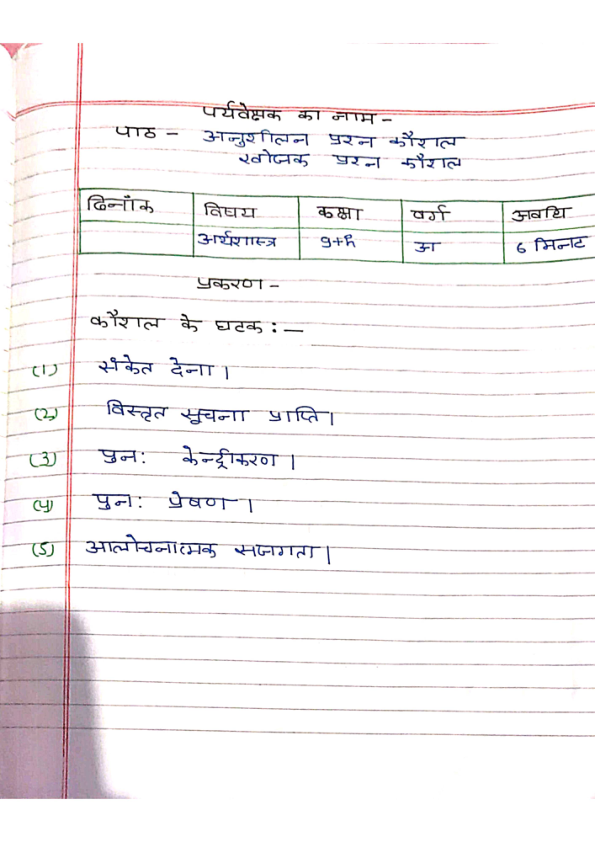 पर्यवेक्षक का नाम -
पाठ - अनुशीलन प्रश्न कौशल
खोजक प्रश्न कौशल
दिनाँक विषय कक्षा वर्ग अवधि
अर्थशास्त्र 9th अ 6 मिनट
प्रकरण -
कौशल के घटक : —
(1) संकेत देना।
(2) विस्तृत सूचना प्राप्ति।
(3) पुन: केन्द्रीकरण।
(4) पुन: प्रेषण।
(5) आलोचनात्मक सजगता।